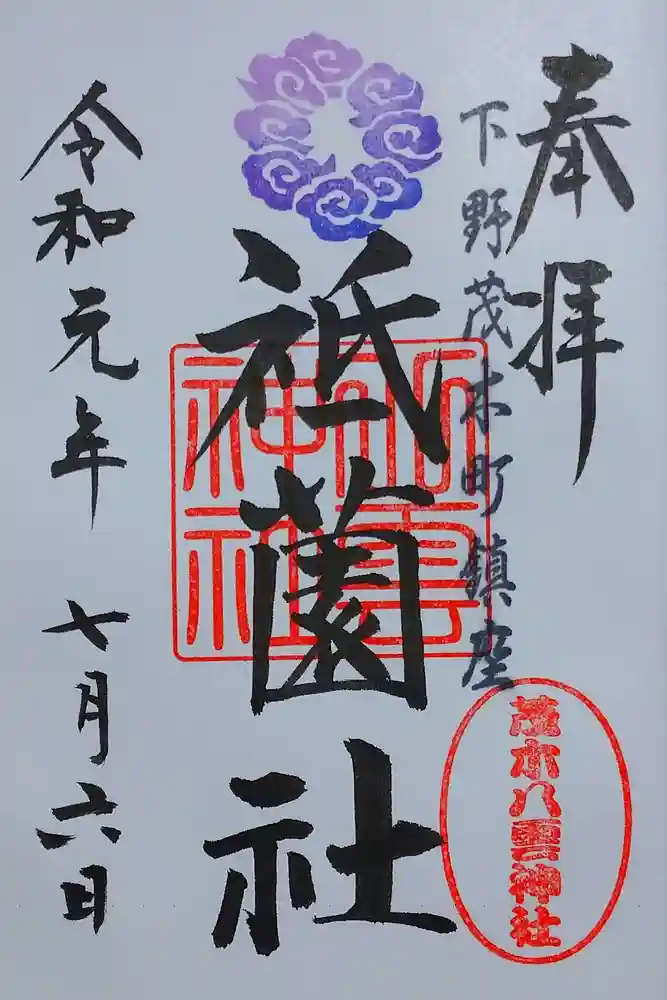 奉拝
下野茂木町鎮座
祇薗社
八雲神社
茂木八雲神社
令和元年
七月六日